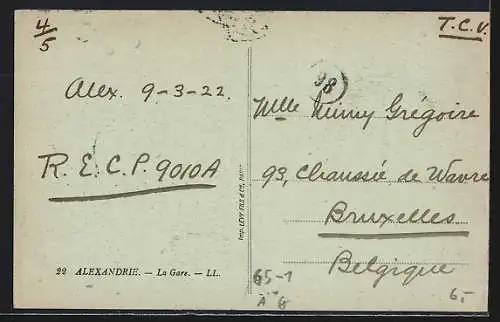 4/5
T.C.V.
98
Alex. 9-3-22.
Mlle Mimy Grégoire
R.E.C.P. 9010A
93, Chaussée de Wavre
Bruxelles
Belgique
Imp. LÉVY FILS & Cie, PARIS
22 ALEXANDRIE. — La Gare. — LL.
65-1
A G
6,-